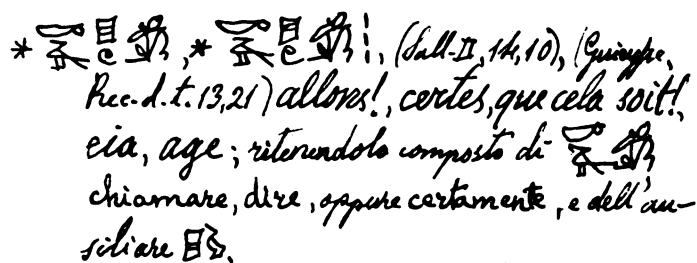 *, * !, (Sall-II, 14, 10), (Guieyse,
Rec. d. t. 13, 21) allons!, certes, que cela soit!,
eia, age; ritenendolo composto di
chiamare, dire, oppure certamente, e dell'au-
siliare